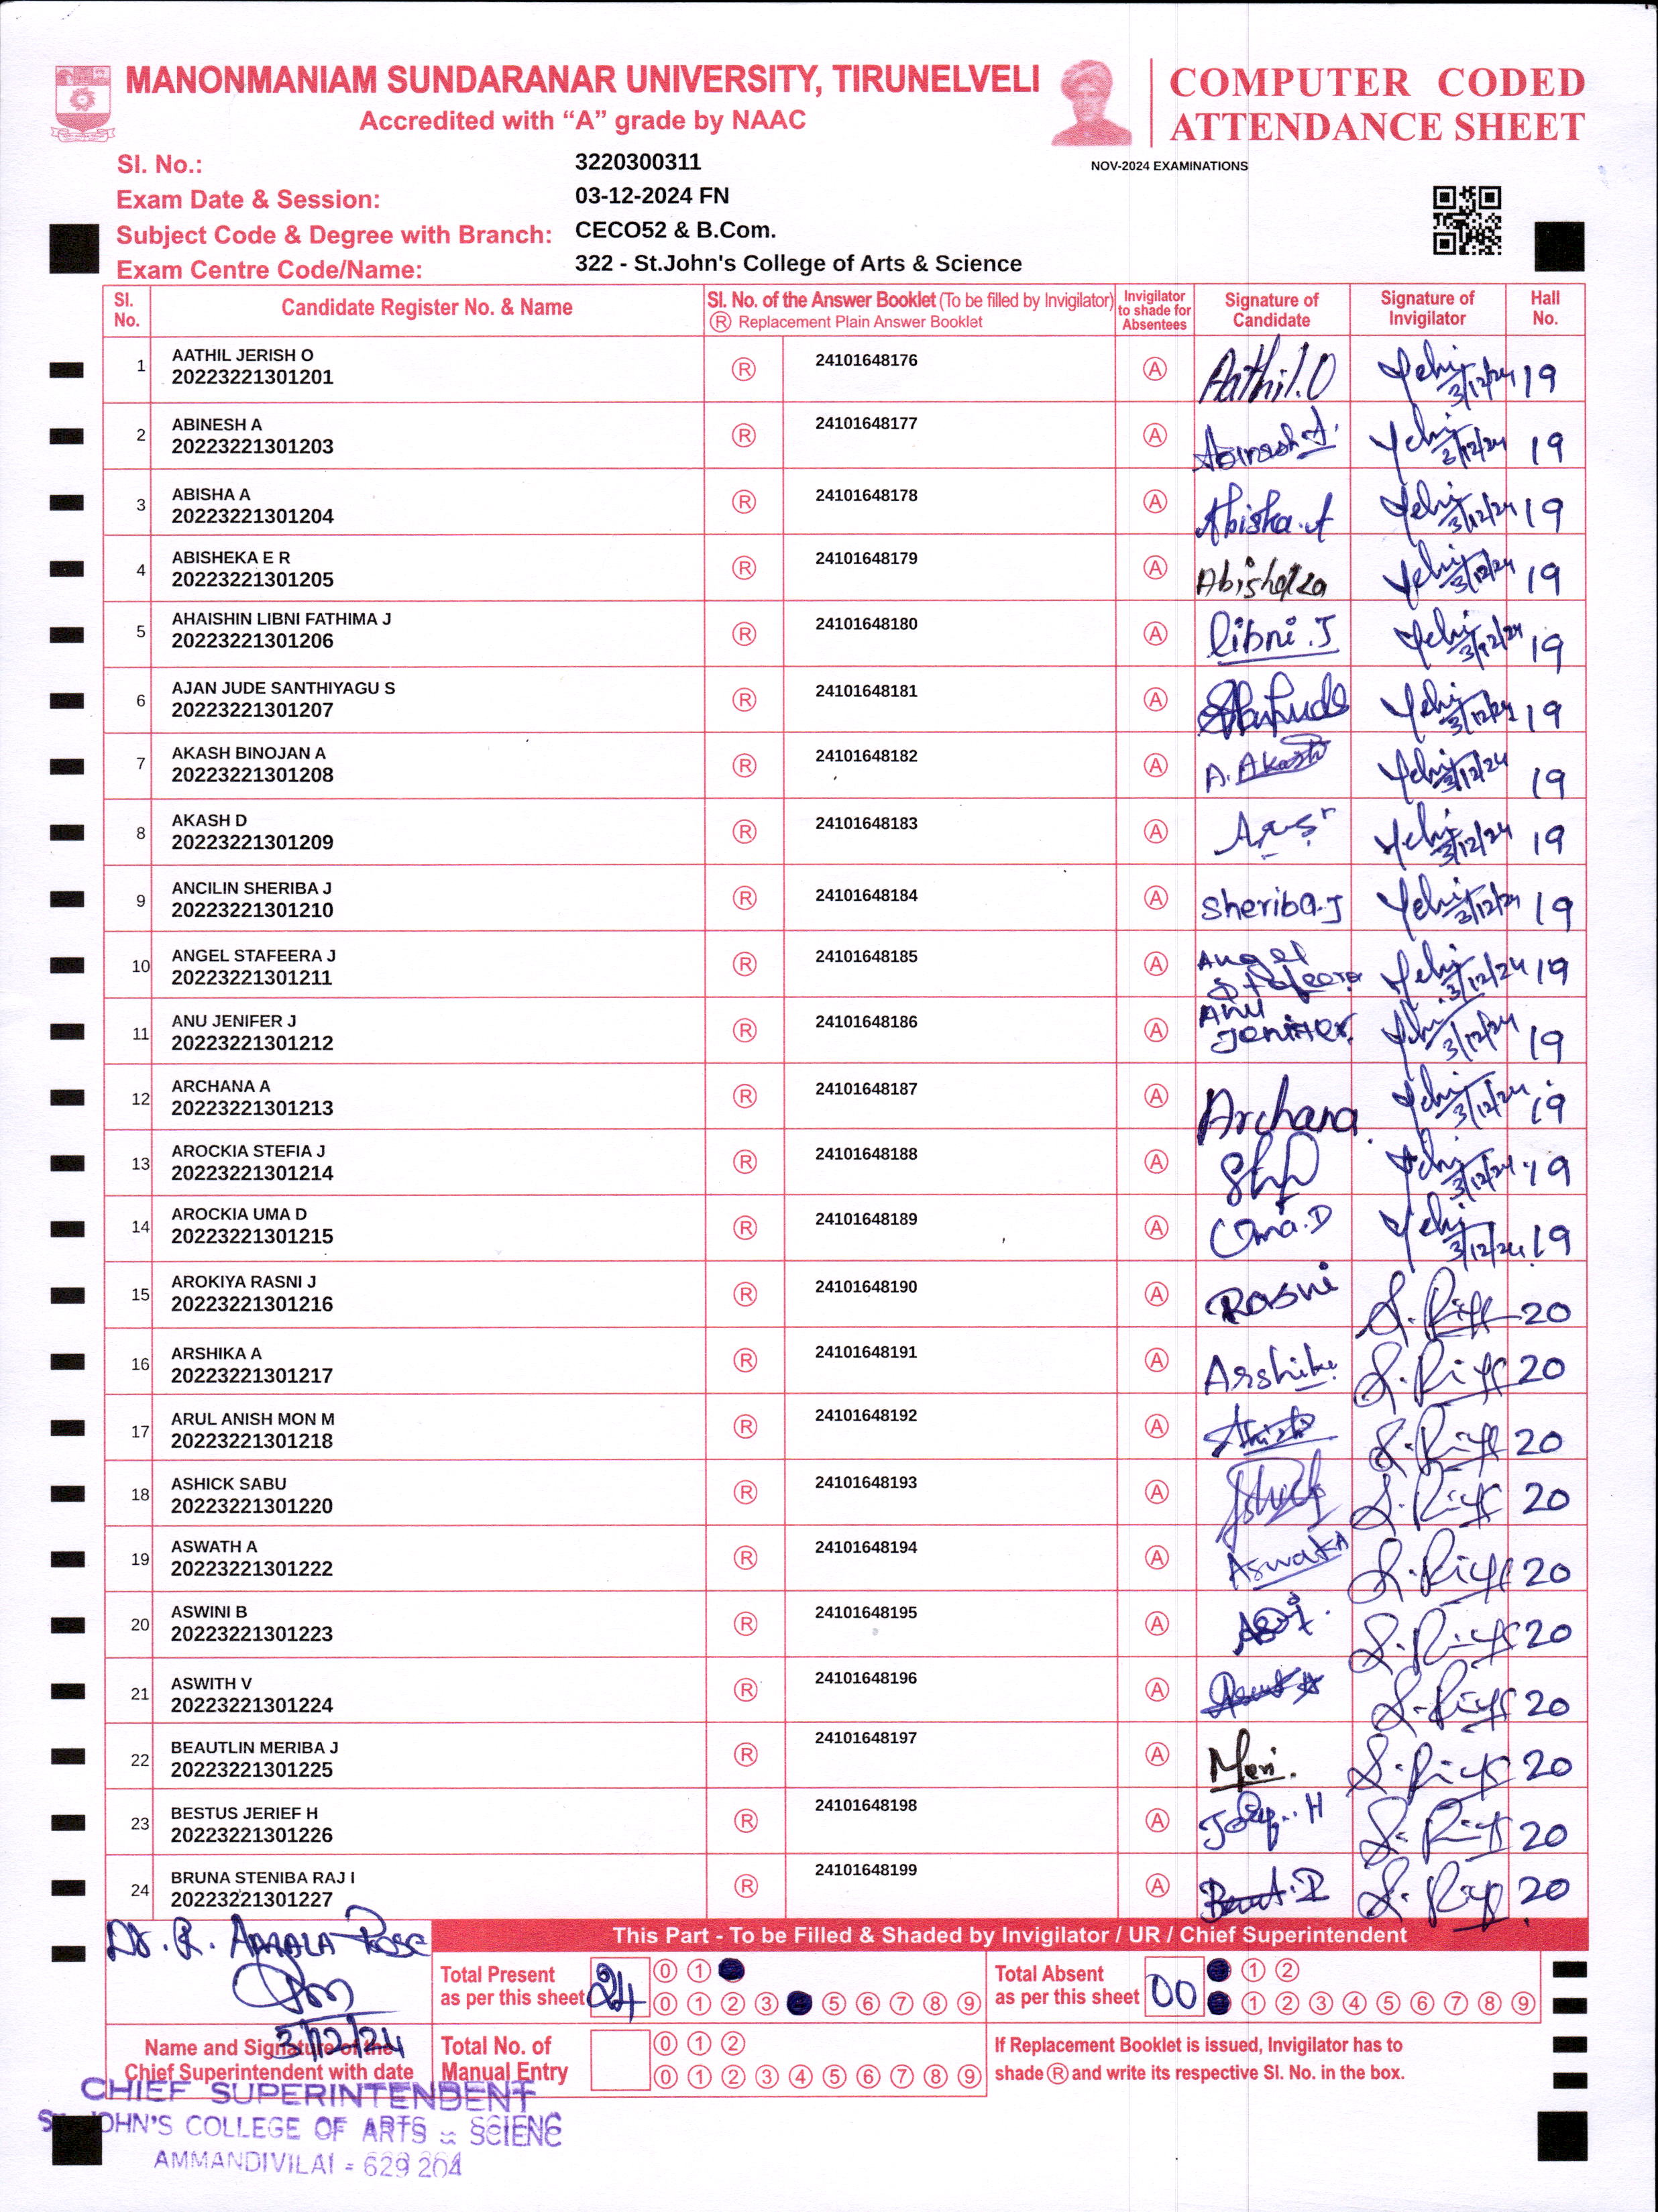 MANONMANIAM SUNDARANAR UNIVERSITY, TIRUNELVELI
Accredited with “A” grade by NAAC
COMPUTER CODED
ATTENDANCE SHEET
NOV-2024 EXAMINATIONS
Sl. No.: 3220300311
Exam Date & Session: 03-12-2024 FN
Subject Code & Degree with Branch: CECO52 & B.Com.
Exam Centre Code/Name: 322 - St.John's College of Arts & Science
Sl. No. Candidate Register No. & Name Sl. No. of the Answer Booklet (To be filled by Invigilator) Ⓡ Replacement Plain Answer Booklet Invigilator to shade for Absentees Signature of Candidate Signature of Invigilator Hall No.
1 AATHIL JERISH O 20223221301201 Ⓡ 24101648176 Ⓐ Aathil.O 3/12/24 19
2 ABINESH A 20223221301203 Ⓡ 24101648177 Ⓐ Abinesh.A. 3/12/24 19
3 ABISHA A 20223221301204 Ⓡ 24101648178 Ⓐ Abisha.A 3/12/24 19
4 ABISHEKA E R 20223221301205 Ⓡ 24101648179 Ⓐ Abisheka 3/12/24 19
5 AHAISHIN LIBNI FATHIMA J 20223221301206 Ⓡ 24101648180 Ⓐ libni.J 3/12/24 19
6 AJAN JUDE SANTHIYAGU S 20223221301207 Ⓡ 24101648181 Ⓐ 3/12/24 19
7 AKASH BINOJAN A 20223221301208 Ⓡ 24101648182 Ⓐ A. Akash 3/12/24 19
8 AKASH D 20223221301209 Ⓡ 24101648183 Ⓐ 3/12/24 19
9 ANCILIN SHERIBA J 20223221301210 Ⓡ 24101648184 Ⓐ Sheriba.J 3/12/24 19
10 ANGEL STAFEERA J 20223221301211 Ⓡ 24101648185 Ⓐ Angel Stafeera 3/12/24 19
11 ANU JENIFER J 20223221301212 Ⓡ 24101648186 Ⓐ Anu Jenifer. 3/12/24 19
12 ARCHANA A 20223221301213 Ⓡ 24101648187 Ⓐ Archana. 3/12/24 19
13 AROCKIA STEFIA J 20223221301214 Ⓡ 24101648188 Ⓐ 3/12/24 19
14 AROCKIA UMA D 20223221301215 Ⓡ 24101648189 Ⓐ Uma.D 3/12/24 19
15 AROKIYA RASNI J 20223221301216 Ⓡ 24101648190 Ⓐ Rasni 20
16 ARSHIKA A 20223221301217 Ⓡ 24101648191 Ⓐ Arshika 20
17 ARUL ANISH MON M 20223221301218 Ⓡ 24101648192 Ⓐ 20
18 ASHICK SABU 20223221301220 Ⓡ 24101648193 Ⓐ 20
19 ASWATH A 20223221301222 Ⓡ 24101648194 Ⓐ Aswath 20
20 ASWINI B 20223221301223 Ⓡ 24101648195 Ⓐ 20
21 ASWITH V 20223221301224 Ⓡ 24101648196 Ⓐ 20
22 BEAUTLIN MERIBA J 20223221301225 Ⓡ 24101648197 Ⓐ Meri. 20
23 BESTUS JERIEF H 20223221301226 Ⓡ 24101648198 Ⓐ 20
24 BRUNA STENIBA RAJ I 20223221301227 Ⓡ 24101648199 Ⓐ 20
Dr. R. AMALA Rose
3/12/24
Name and Signature of the
Chief Superintendent with date
This Part - To be Filled & Shaded by Invigilator / UR / Chief Superintendent
Total Present
as per this sheet 24
0 1
0 1 2 3 5 6 7 8 9
Total Absent
as per this sheet 00
1 2
1 2 3 4 5 6 7 8 9
Total No. of
Manual Entry
0 1 2
0 1 2 3 4 5 6 7 8 9
If Replacement Booklet is issued, Invigilator has to
shade Ⓡ and write its respective Sl. No. in the box.
CHIEF SUPERINTENDENT
JOHN'S COLLEGE OF ARTS & SCIENC
AMMANDIVILAI - 629 204